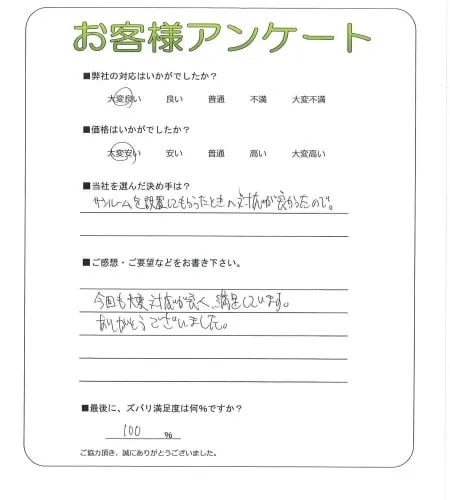 お客様アンケート
■弊社の対応はいかがでしたか?
大変良い 良い 普通 不満 大変不満
■価格はいかがでしたか?
大変安い 安い 普通 高い 大変高い
■当社を選んだ決め手は?
サンルームを設置してもらったときの対応が良かったので。
■ご感想・ご要望などをお書き下さい。
今回も大変対応が良く、満足しています。
ありがとうございました。
■最後に、ズバリ満足度は何%ですか?
100 %
ご協力頂き、誠にありがとうございました。